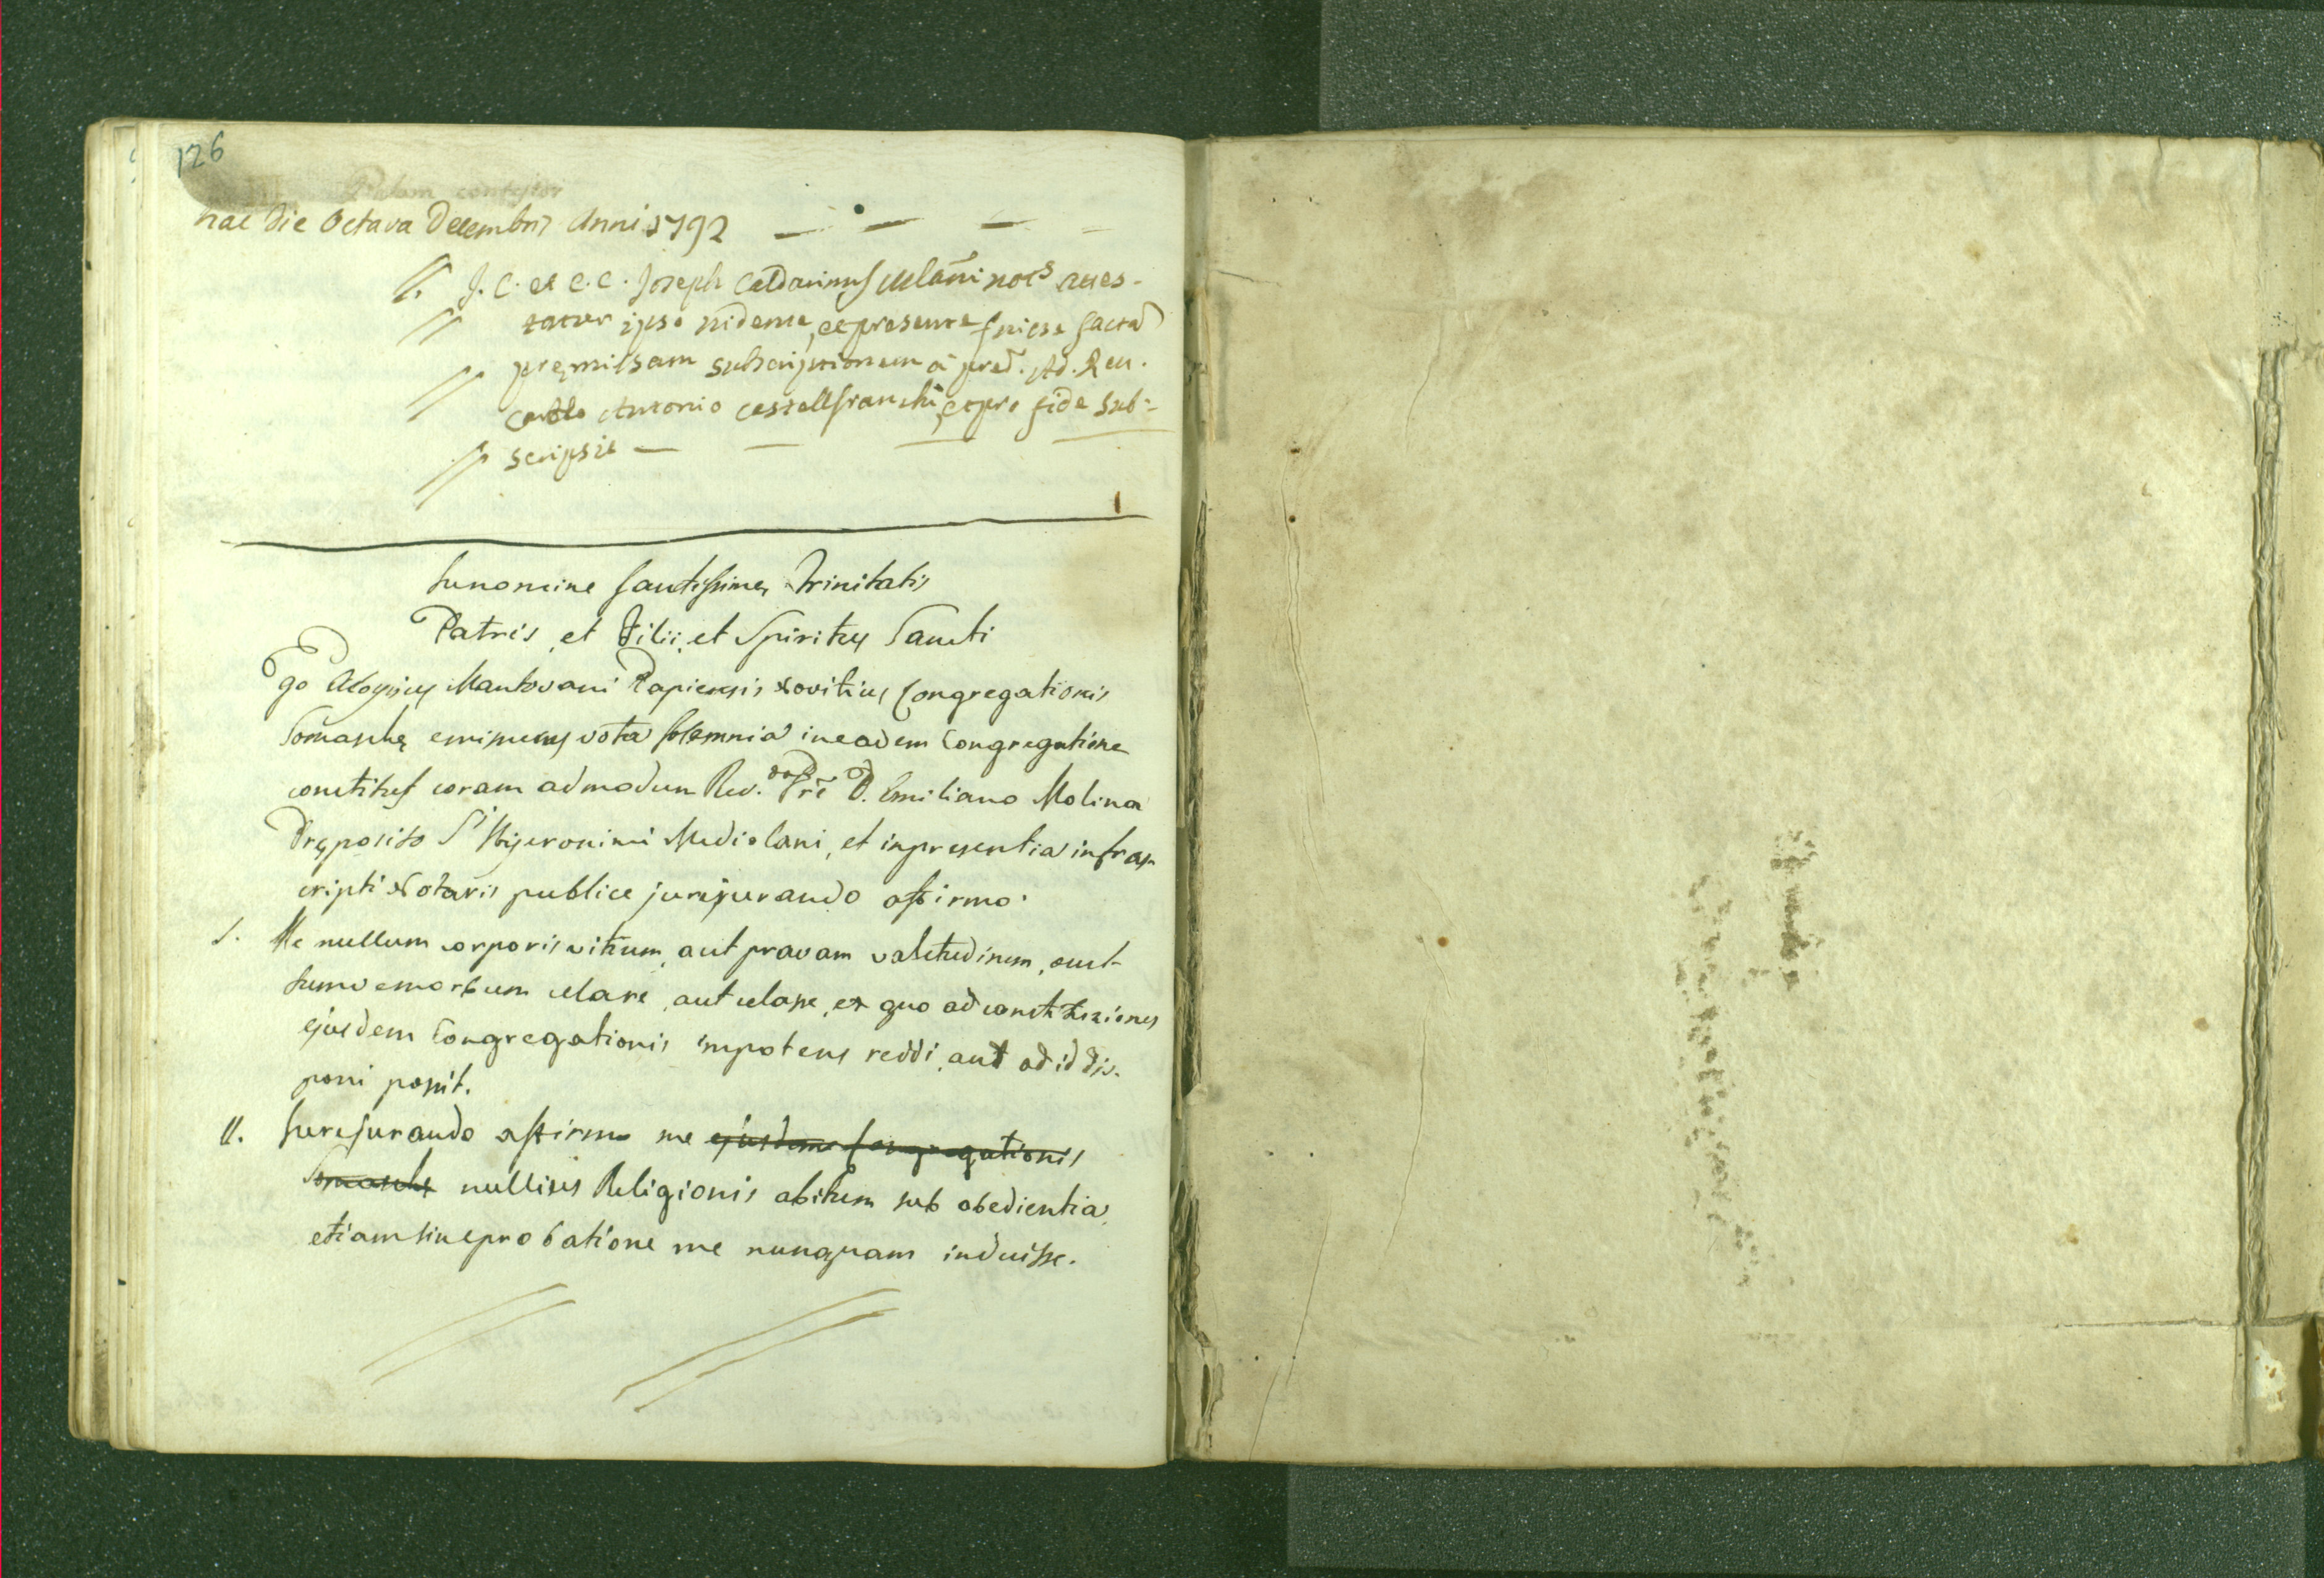 126
Palam contestor
hac die Octava Decembris Anni 1792
J. C. et C. C. Joseph Caldarinus Mlani nots attes-
tatur ipso vidente, et presente fuisse factã
premissam subscriptionem a pred. Ad. Rev.
Carlo Antonio Castelfranchi, et pro fide sub-
scripsit
In nomine Santissimę Trinitatis
Patris, et Filii, et Spiritus Sancti
Ego Aloysius Mantovani Papiensis Novitius Congregationis
Somaschę emissurus vota solemnia in eadem Congregatione
constitus coram admodum Rev.do Prē D. Emiliano Molina
Pręposito Sti Hyeronimi Mediolani, et in presentia infras
cripti Notarii publice jurejurando affirmo.
I. Me nullum corporis vitium, aut pravam valetudinem, aut
morbum celare, aut celasse, ex quo ad constituziones
ejusdem Congregationis impotens reddi, aut ad id dis-
poni possit.
II. Jurejurando affirmo me ejusdem Congregationis
Somaschę nullius Religionis abitum sub obedientia,
etiam sine probatione me nunquam induisse.